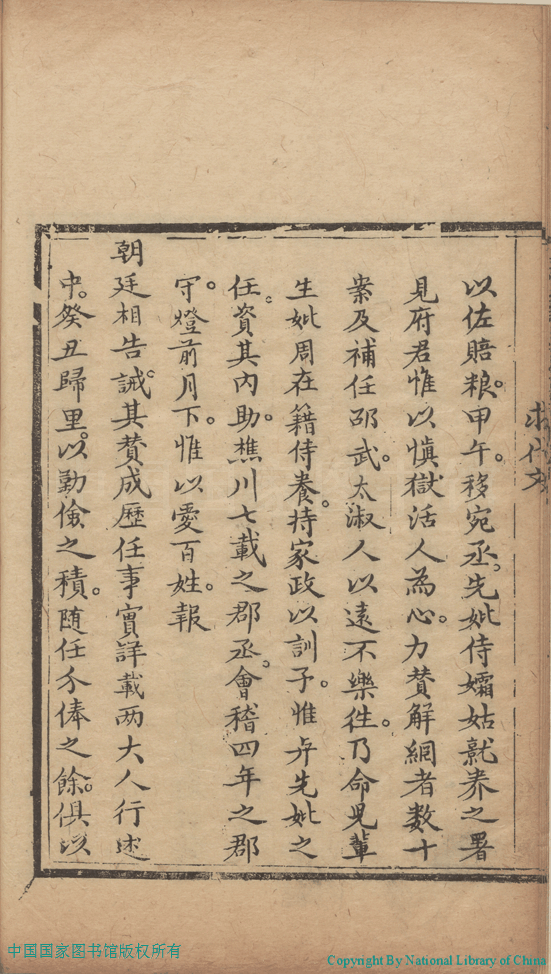 以佐賠粮。甲午。移宛丞。先妣侍孀姑就养之署
見府君惟以慎獄活人為心。力賛解網者数十
案及補任邵武。太淑人以遠不樂徃。乃命児軰
生妣周在籍侍養。持家政以訓子。惟弁先妣之
任。資其内助。樵川七載之郡丞。會稽四年之郡
守。燈前月下。惟以愛百姓。報
朝廷相告誡。其賛成歷任事實詳載两大人行述
中。癸丑歸里。以勤儉之積。随任分俸之餘。俱以
中国国家图书馆版权所有
Copyright By National Library of China